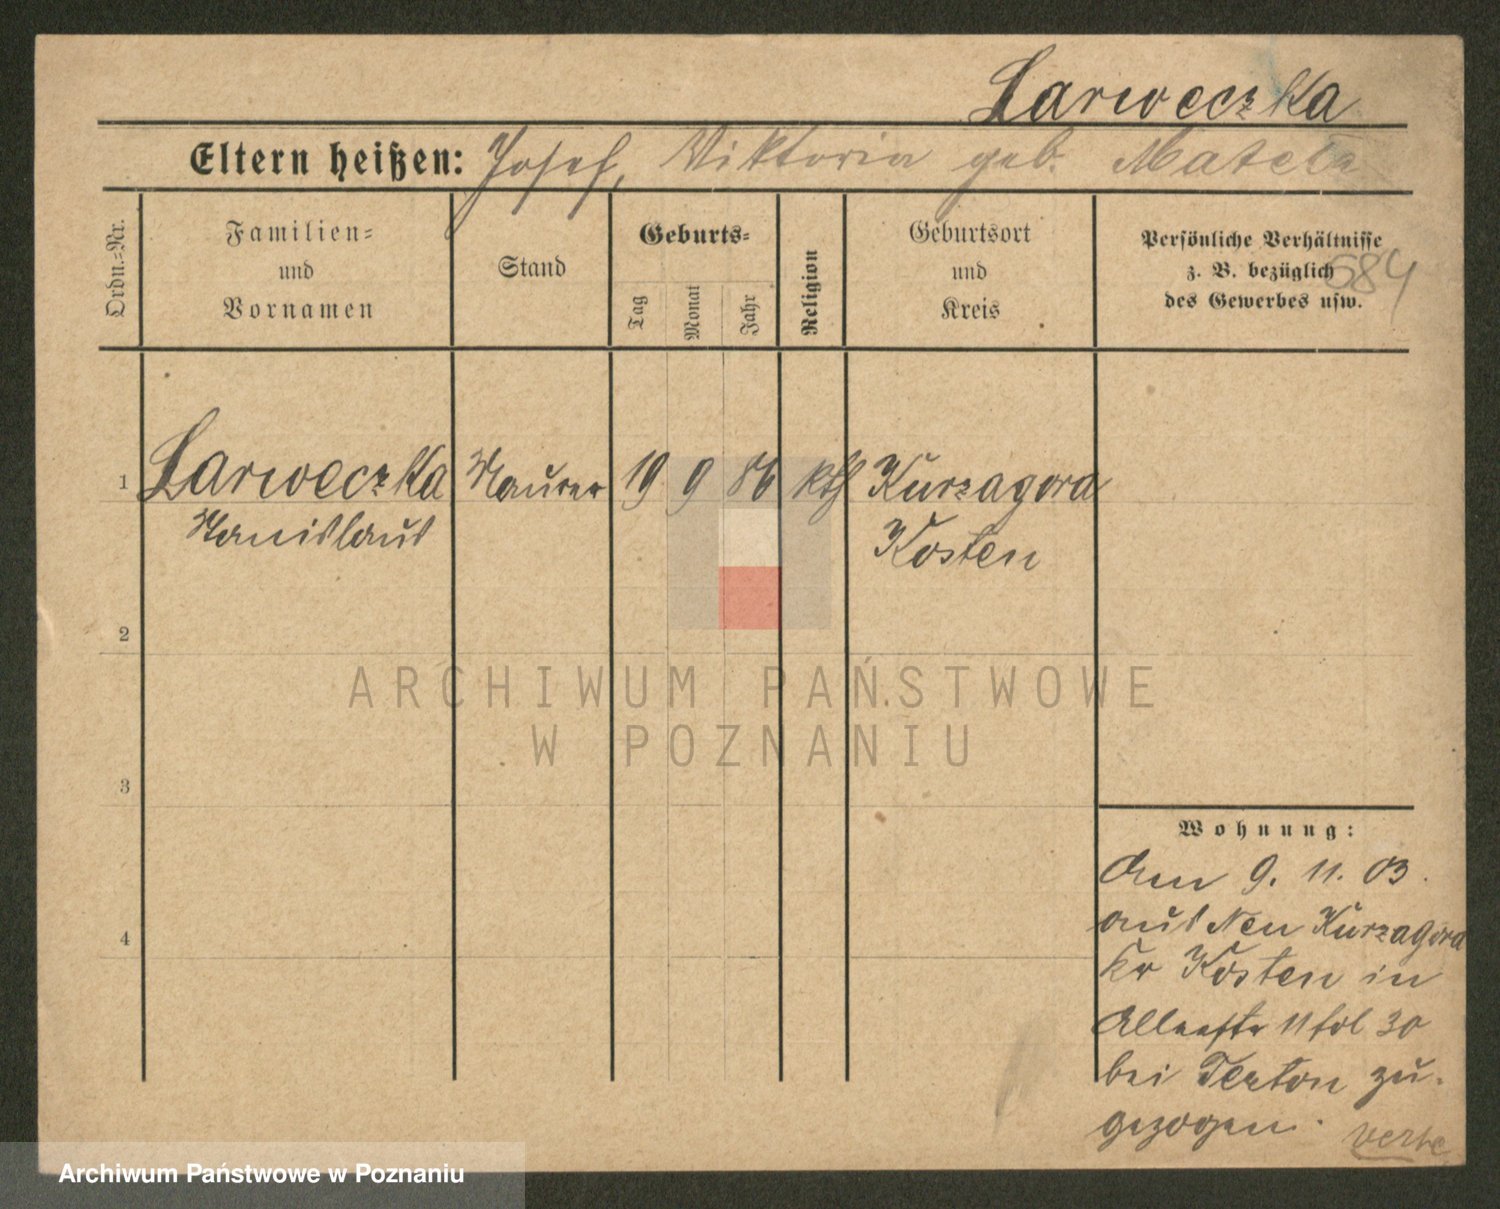 Larweczka
Eltern heißen: Josef, Viktoria geb. Matela
Ordn.-Nr.
Familien-
und
Vornamen
Stand
Geburts-
Tag
Monat
Jahr
Religion
Geburtsort
und
Kreis
Persönliche Verhältnisse
z. B. bezüglich
des Gewerbes usw.
684
1 Larweczka Maurer 19 9 86 kth Kurzagora
Stanislaus Kosten
2
3
4
Wohnung:
Am 9. 11. 03.
aus Neu Kurzagora
Kr Kosten in
11 fol 30
bei zu-
gezogen.
ARCHIWUM PAŃSTWOWE
W POZNANIU
Archiwum Państwowe w Poznaniu